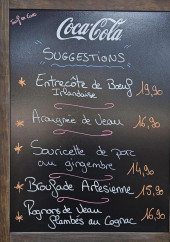 Coca-Cola
SUGGESTIONS
Entrecôte de Boeuf
Irlandaise 19,90
Araignée de Veau 16,90
Souricette de porc
au gingembre 14,90
Broufade Arlesienne 15,90
Rognons de Veau 16,90
flambés au Cognac